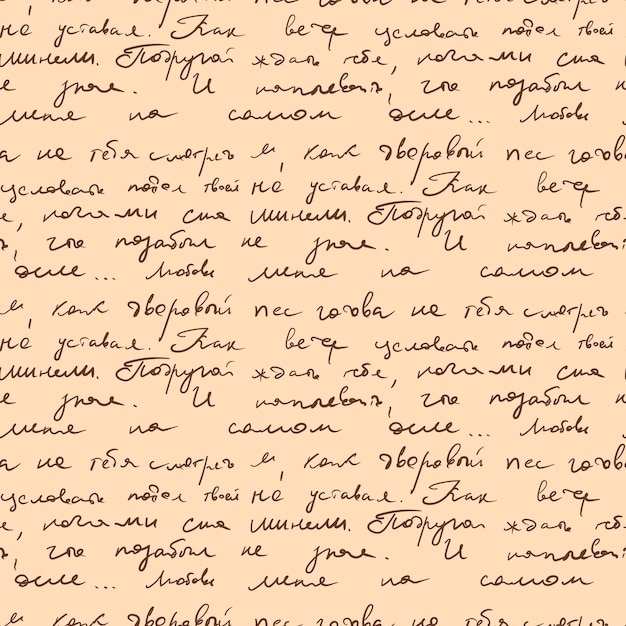 не уставал. Как вечер условась подел твоей
шинели. Подругой ждать тебе, ночами сна
е знае. И наплевать, что позабыл н
меня на самом деле... Любовь
а не тебя смотреть и, как дворовый пес готова
условась подел твоей не уставал. Как вечер
е, ночами сна шинели. Подругой ждать тебе
что позабыл не знае. И наплевать
деле... Любовь меня на самом
и, как дворовый пес готова не тебя смотреть
не уставал. Как вечер условась подел твоей
шинели. Подругой ждать тебе, ночами сна
е знае. И наплевать, что позабыл н
меня на самом деле... Любовь
а не тебя смотреть и, как дворовый пес готова
условась подел твоей не уставал. Как вечер
е, ночами сна шинели. Подругой ждать тебе
что позабыл не знае. И наплевать
деле... Любовь меня на самом
и, как дворовый пес готова не тебя смотреть